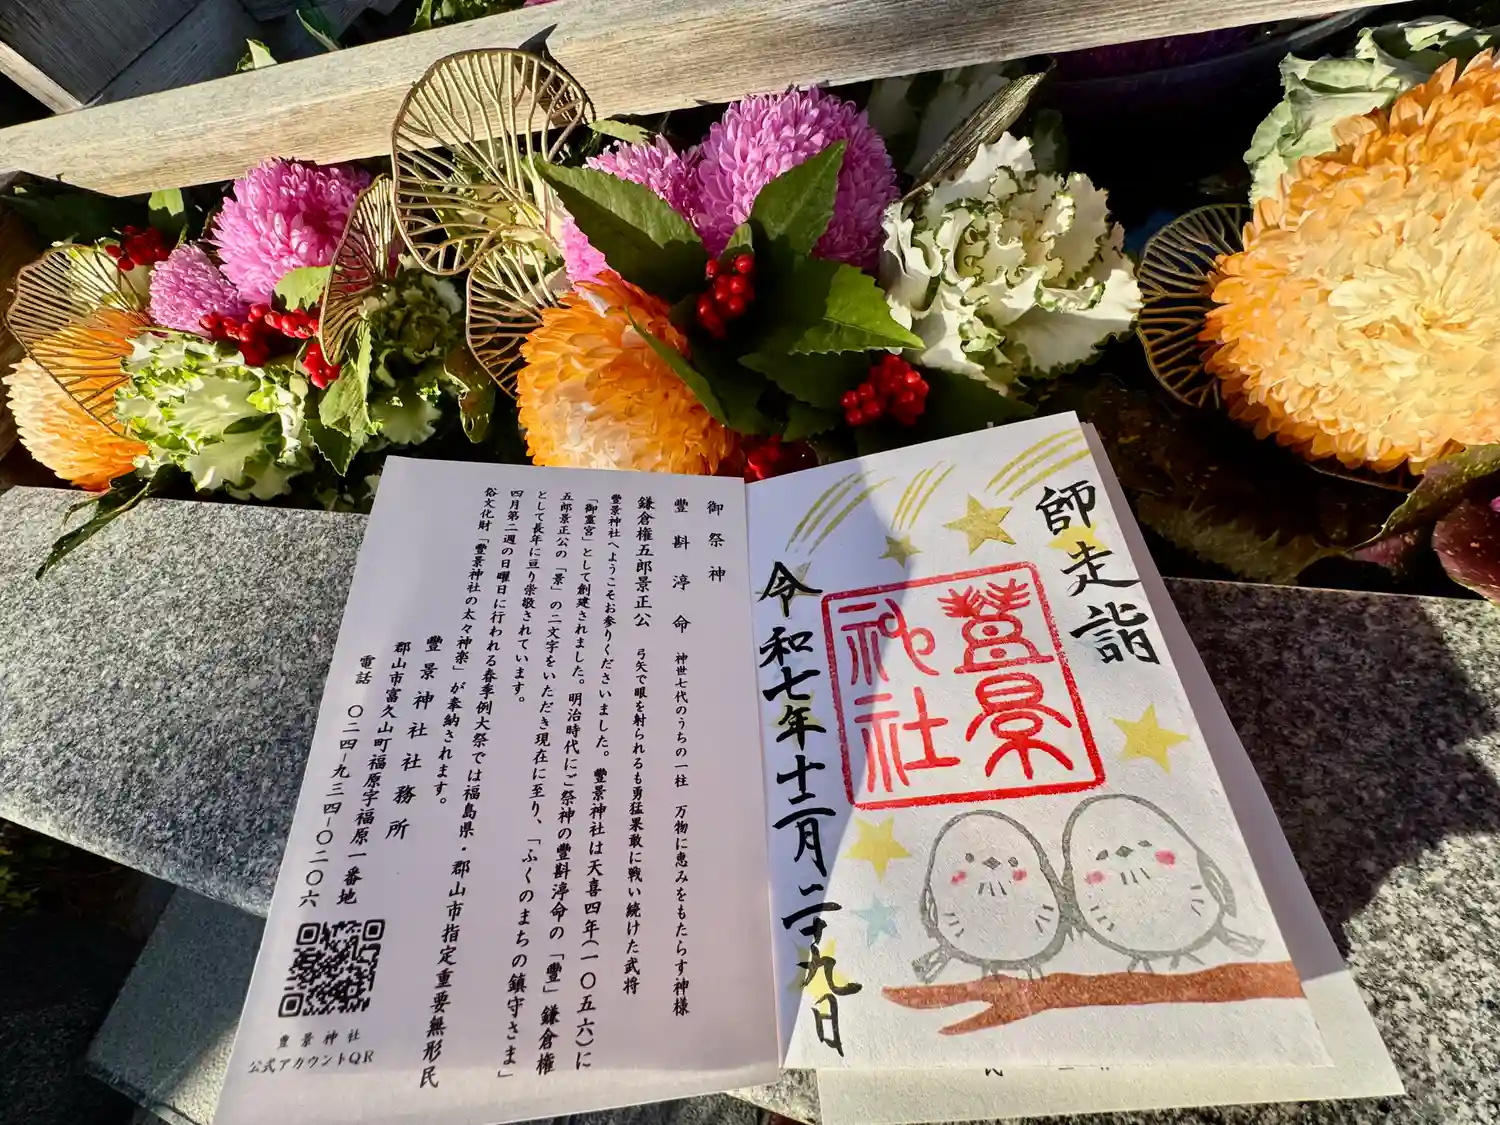 師走詣
豐景神社
令和七年十二月二十九日
御祭神
豐斟渟命 神世七代のうちの一柱 万物に恵みをもたらす神様
鎌倉権五郎景正公 弓矢で眼を射られるも勇猛果敢に戦い続けた武将
豐景神社へようこそお参りくださいました。豐景神社は天喜四年(一〇五六)に
「御霊宮」として創建されました。明治時代にご祭神の豐斟渟命の「豐」鎌倉権
五郎景正公の「景」の二文字をいただき現在に至り、「ふくのまちの鎮守さま」
として長年に亘り崇敬されています。
四月第二週の日曜日に行われる春季例大祭では福島県・郡山市指定重要無形民
俗文化財「豐景神社の太々神楽」が奉納されます。
豐景神社社務所
郡山市富久山町福原字福原一番地
電話 〇二四-九三四-〇二〇六
豊景神社
公式アカウントQR